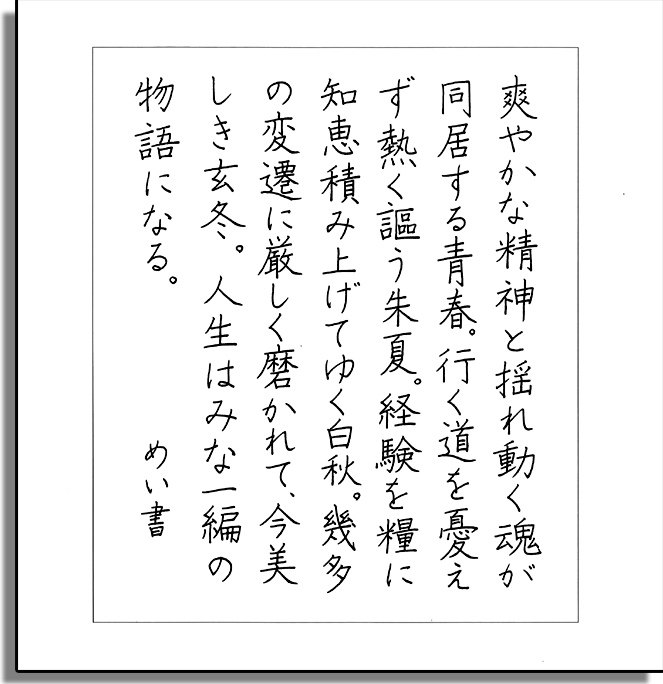 爽やかな精神と揺れ動く魂が
同居する青春。行く道を憂え
ず熱く謳う朱夏。経験を糧に
知恵積み上げてゆく白秋。幾多
の変遷に厳しく磨かれて、今美
しき玄冬。人生はみな一編の
物語になる。
めい書